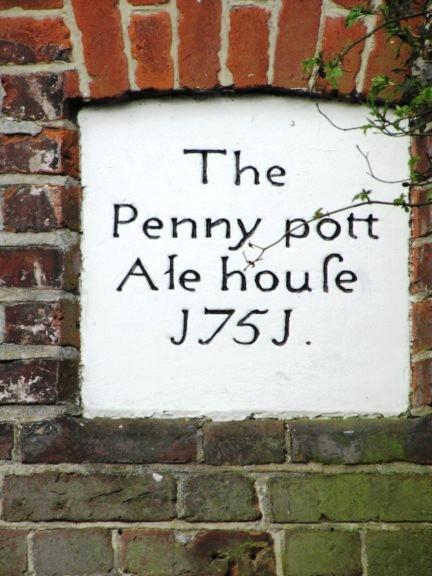 The
Penny pott
Ale houſe
1751.